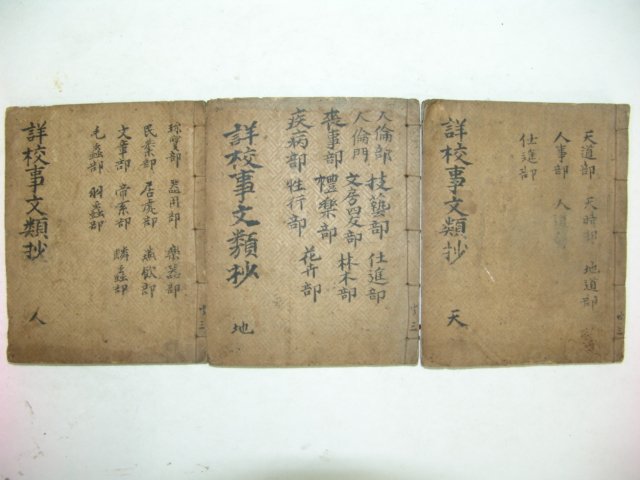 天道部 天時部 地道部
人事部 人
仕進部
詳校事文類抄 天
人倫部 技藝部 仕進部
人倫門 文房四友部 林木部
喪事部 禮樂部
疾病部 性行部 花卉部
詳校事文類抄 地
部 器用部 樂器部
民業部 居處部 部
文章部 帝系部 鱗蟲部
毛蟲部 羽蟲部
詳校事文類抄 人